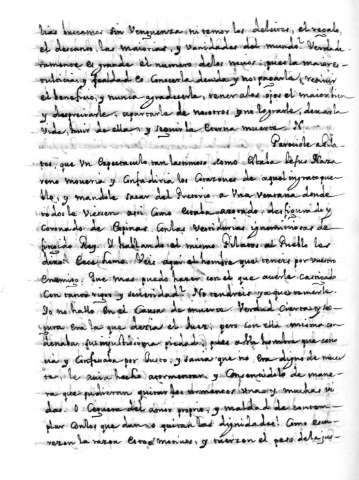 bias buscamos sin Verguenza, ni temor los deleites, el regalo,
el descanso, las maiorias, y Vanidades del mundo. Verdade
ramente es grande el numero de los pues la maior
y fealdad es Conocer la deuda y no pagarla, recivir
el beneficio, y nunca agradecerle, tener a los ojos el
y despreciarle, apartarla de nosotros y no lograrle, dexar la
Vida, huir de ella, y seguir la Eterna muerte. N
Pareciole a Pila
tos, que Vn Espectaculo tan lastimoso como Estaba Iesus Naza
reno moveria y Confundiria los Corazones de aquel ingrato pue
blo, y mandole sacar del Pretorio a Una Ventana donde
todos le Viessen asi Como Estaba azotado, desfigurado y
Coronado de Espinas Con las Vestiduras ignominiosas de
fingido Rey. I hablando el mismo Pilatos al Pueblo les
dixo: Ecce homo. Veis aqui el hombre que teneis por vuestro
Enemigo. Que mas puedo hacer con el que averle Castigado
Con tanto rigor y severidad? No tendreis ya que temerle.
Io no hallo En el Causa de muerte. Verdad Cierta y se-
gura Era la que decia el Juez, pero con ella mismo con
denaba su injusticia pues a Un hombre que cono
cia y Confesaba por Iusto, y savia que no Era digno de muer
te, le avia hecho atormentar y de mane-
ra que pudieran quitar los tormentos Una y muchas vi
das. O Ceguera del amor propio, y maldad de contem
plar Con los que dan o quitan las dignidades! Como escu-
rezen la razon Estos motivos, y tuerzen el peso de la jus-